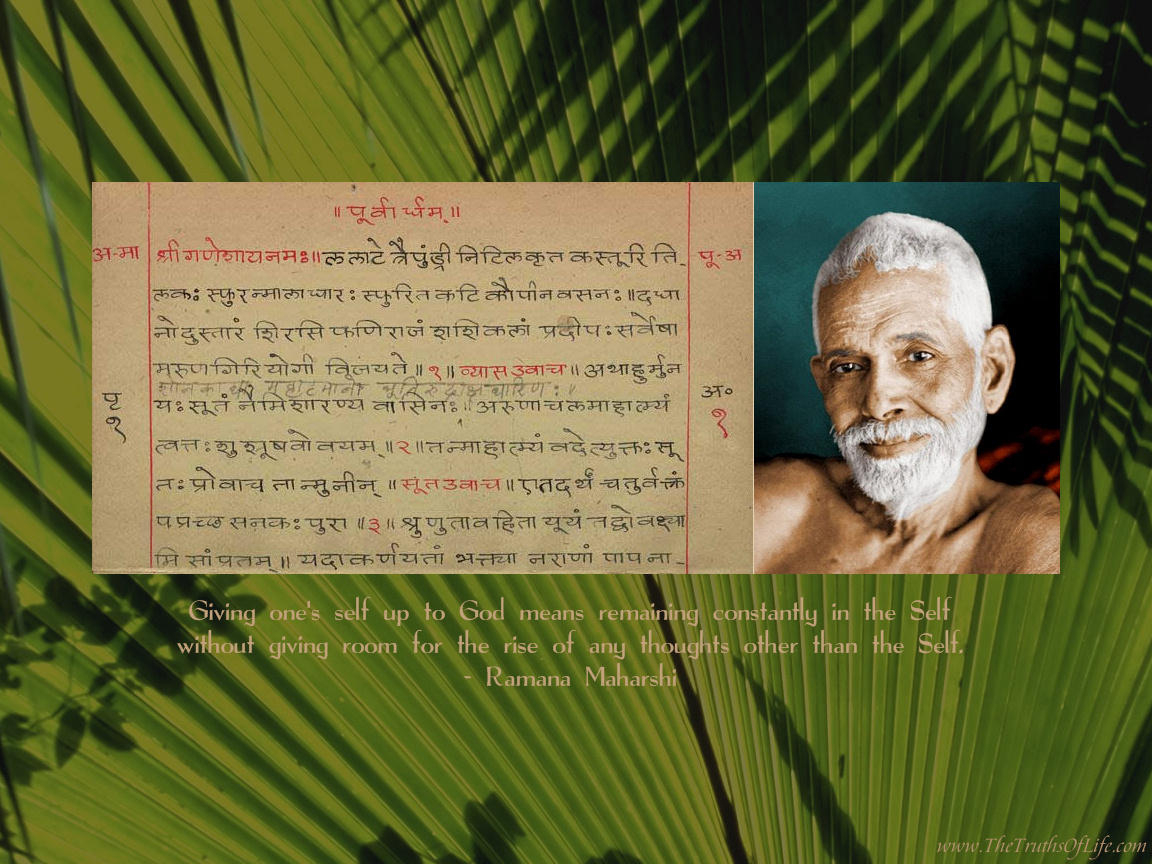 ॥ पूर्वार्धम् ॥
अ-मा
श्रीगणेशायनमः॥ ललाटे त्रैपुंड्री निटिलकृत कस्तूरि ति-
पू-अ
लकः स्फुरन्मालाधारः स्फुरित कटि कौपीन वसनः॥ दधा
नो दुस्तारं शिरसि फणिराजं शशिकलां प्रदीपः सर्वेषा
मरुणगिरि योगी विजयते ॥ १॥ व्यास उवाच ॥ अथाहुर्मुन
पृ
१
अ०
१
यः सूतं नैमिशारण्य वासिनः॥ अरुणाचलमाहात्म्यं
त्वत्तः शुश्रूषवो वयम् ॥ २॥ तन्माहात्म्यं वदेत्युक्तः सू
तः प्रोवाच तान्मुनीन् ॥ सूत उवाच ॥ एतदर्थं चतुर्वक्त्रं
पप्रच्छ सनकः पुरा ॥ ३॥ श्रुणुतावहिता यूयं तद्वो वक्ष्या
मि सांप्रतम् ॥ यदाकर्णयतां भक्त्या नराणां पापना-
Giving one's self up to God means remaining constantly in the Self
without giving room for the rise of any thoughts other than the Self.
- Ramana Maharshi
www.TheTruthsOfLife.com